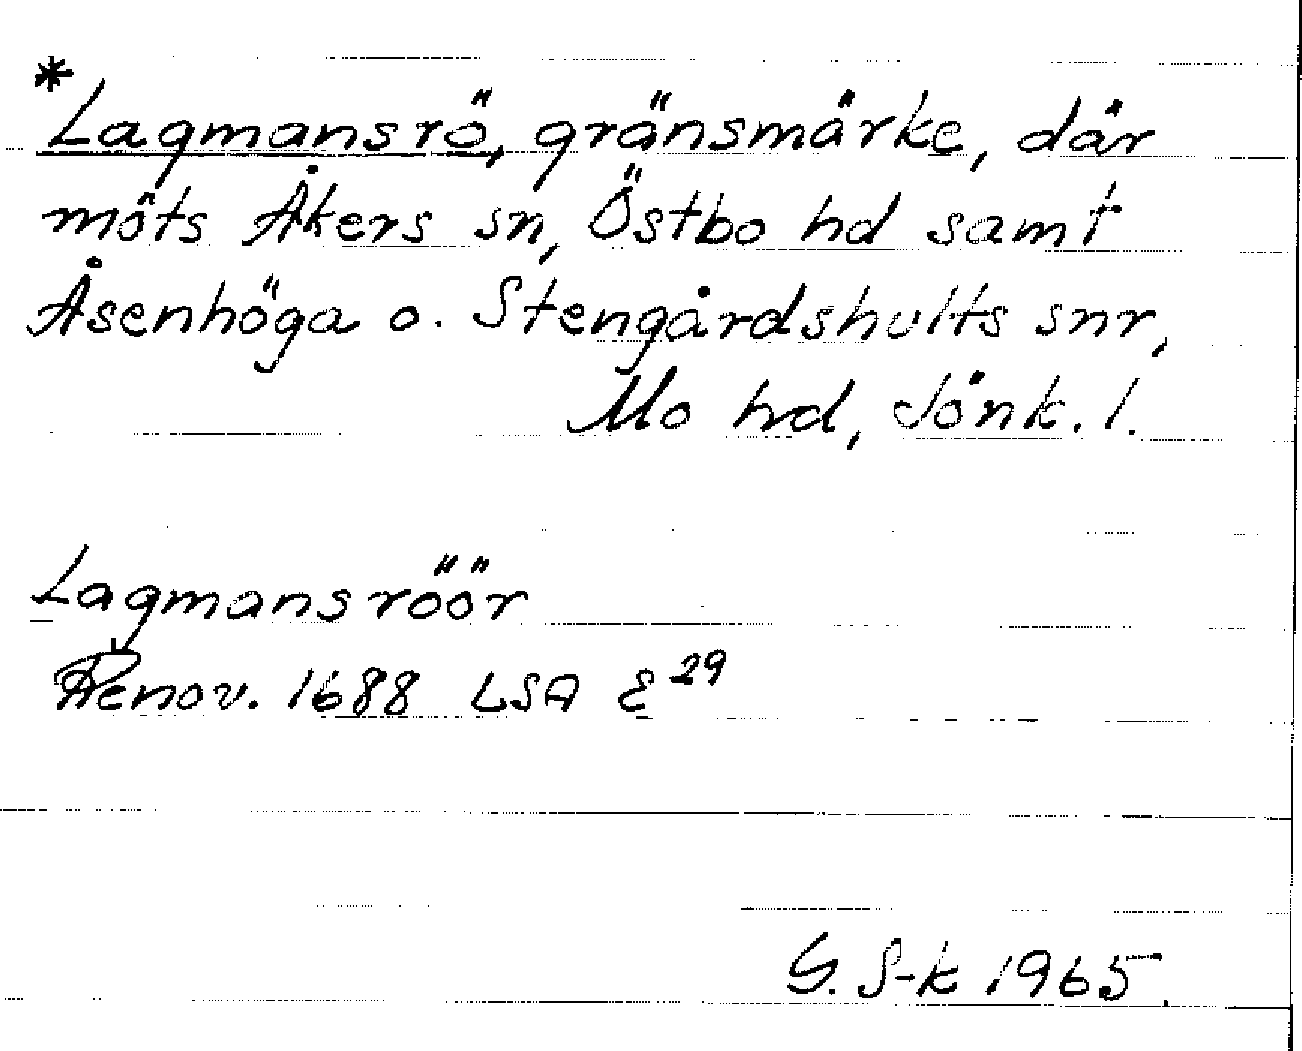 *Lagmansrö, gränsmärke, där
möts Åkers sn, Östbo hd samt
Åsenhöga o. Stengårdshults snr,
Mo hd, Jönk. l.
Lagmansröör
Renov. 1688 LSA E 29
G. S-k 1965.